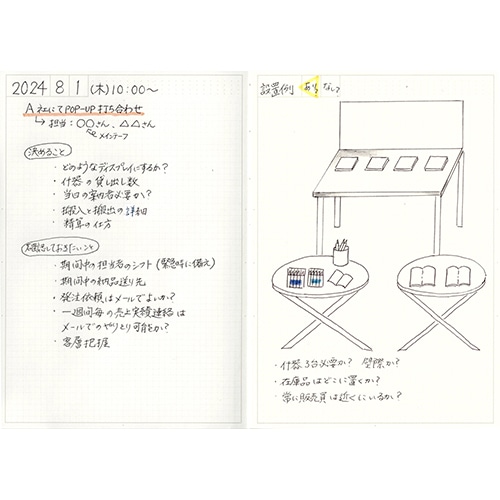 2024 8 1 (木) 10:00〜
A社にてPOP-UP打ち合わせ
↳担当：○○さん、△△さん
メインテーブ
決めること
・どのようなディスプレイにするか？
・什器の貸し出し数
・当日の案内者必要か？
・搬入と搬出の詳細
・精算の仕方
確認しておきたいこと
・期間中の担当者のシフト（緊急時に備え）
・期間中の納品送り先
・発注依頼はメールでよいか？
・一週間毎の売上実績連絡は
メールでのやりとり可能か？
・客層把握
設置例 あり なし？
・什器3台必要か？ 壁際か？
・在庫品はどこに置くか？
・常に販売員は近くにいるか？